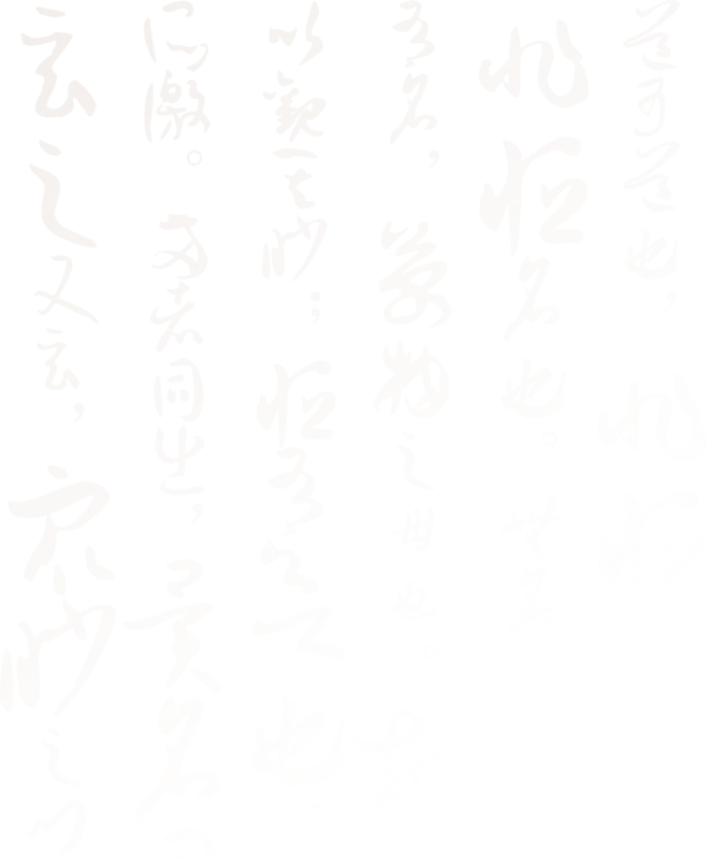 道可道也，非恒
非恒名也。無名
有名，萬物之母也。
以觀其眇；恒有欲也
所徼。兩者同出，異名同
玄之又玄，眾眇之門